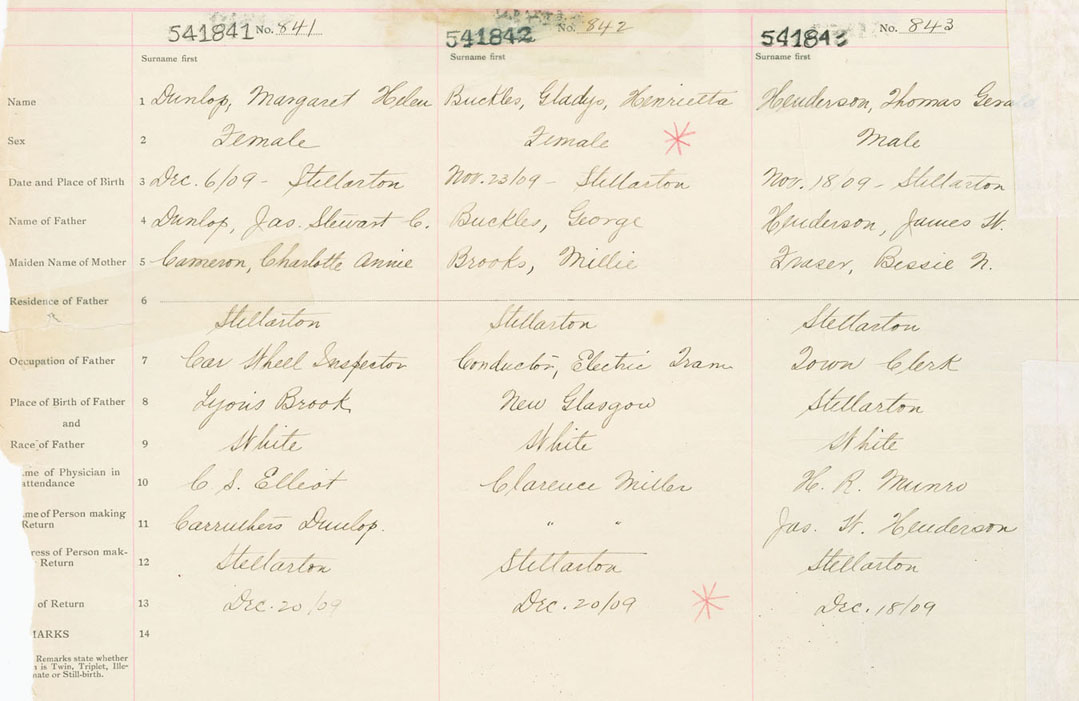 541841 No. 841 541842 No. 842 541843 No. 843
Surname first Surname first Surname first
Name 1 Dunlop, Margaret Helen Buckles, Gladys, Henrietta Henderson, Thomas
Sex 2 Female Female Male
Date and Place of Birth 3 Dec. 6/09 - Stellarton Nov. 23/09 - Stellarton Nov. 18 09 - Stellarton
Name of Father 4 Dunlop, Jas. Stewart C. Buckles, George Henderson, James W.
Maiden Name of Mother 5 Cameron, Charlotte Annie Brooks, Millie Fraser, Bessie N.
Residence of Father 6
Stellarton Stellarton Stellarton
Occupation of Father 7 Car Wheel Inspector Conductor, Electric Tram Town Clerk
Place of Birth of Father 8 Lyons Brook New Glasgow Stellarton
and
Race of Father 9 White White White
me of Physician in
attendance 10 C. S. Elliot Clarence Miller H. R. Munro
me of Person making
Return 11 Carruthers Dunlop. " " Jas. W. Henderson
ress of Person mak-
Return 12 Stellarton Stellarton Stellarton
of Return 13 Dec. 20/09 Dec. 20/09 Dec. 18/09
MARKS 14
Remarks state whether
is Twin, Triplet, Ille-
mate or Still-birth.